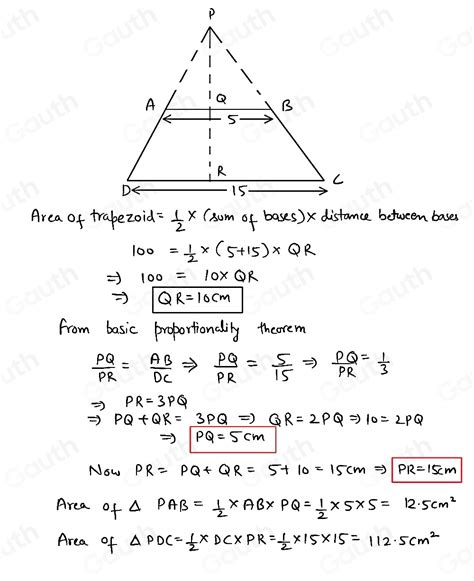 P
A Q B
5
D R C
15
Area of trapezoid = 1/2 × (sum of bases) × distance between bases
100 = 1/2 × (5+15) × QR
⇒ 100 = 10 × QR
⇒ QR = 10cm
From basic proportionality theorem
PQ/PR = AB/DC ⇒ PQ/PR = 5/15 ⇒ PQ/PR = 1/3
⇒ PR = 3PQ
⇒ PQ + QR = 3PQ ⇒ QR = 2PQ ⇒ 10 = 2PQ
⇒ PQ = 5cm
Now PR = PQ + QR = 5 + 10 = 15cm ⇒ PR = 15cm
Area of Δ PAB = 1/2 × AB × PQ = 1/2 × 5 × 5 = 12.5cm²
Area of Δ PDC = 1/2 × DC × PR = 1/2 × 15 × 15 = 112.5cm²
Gauth